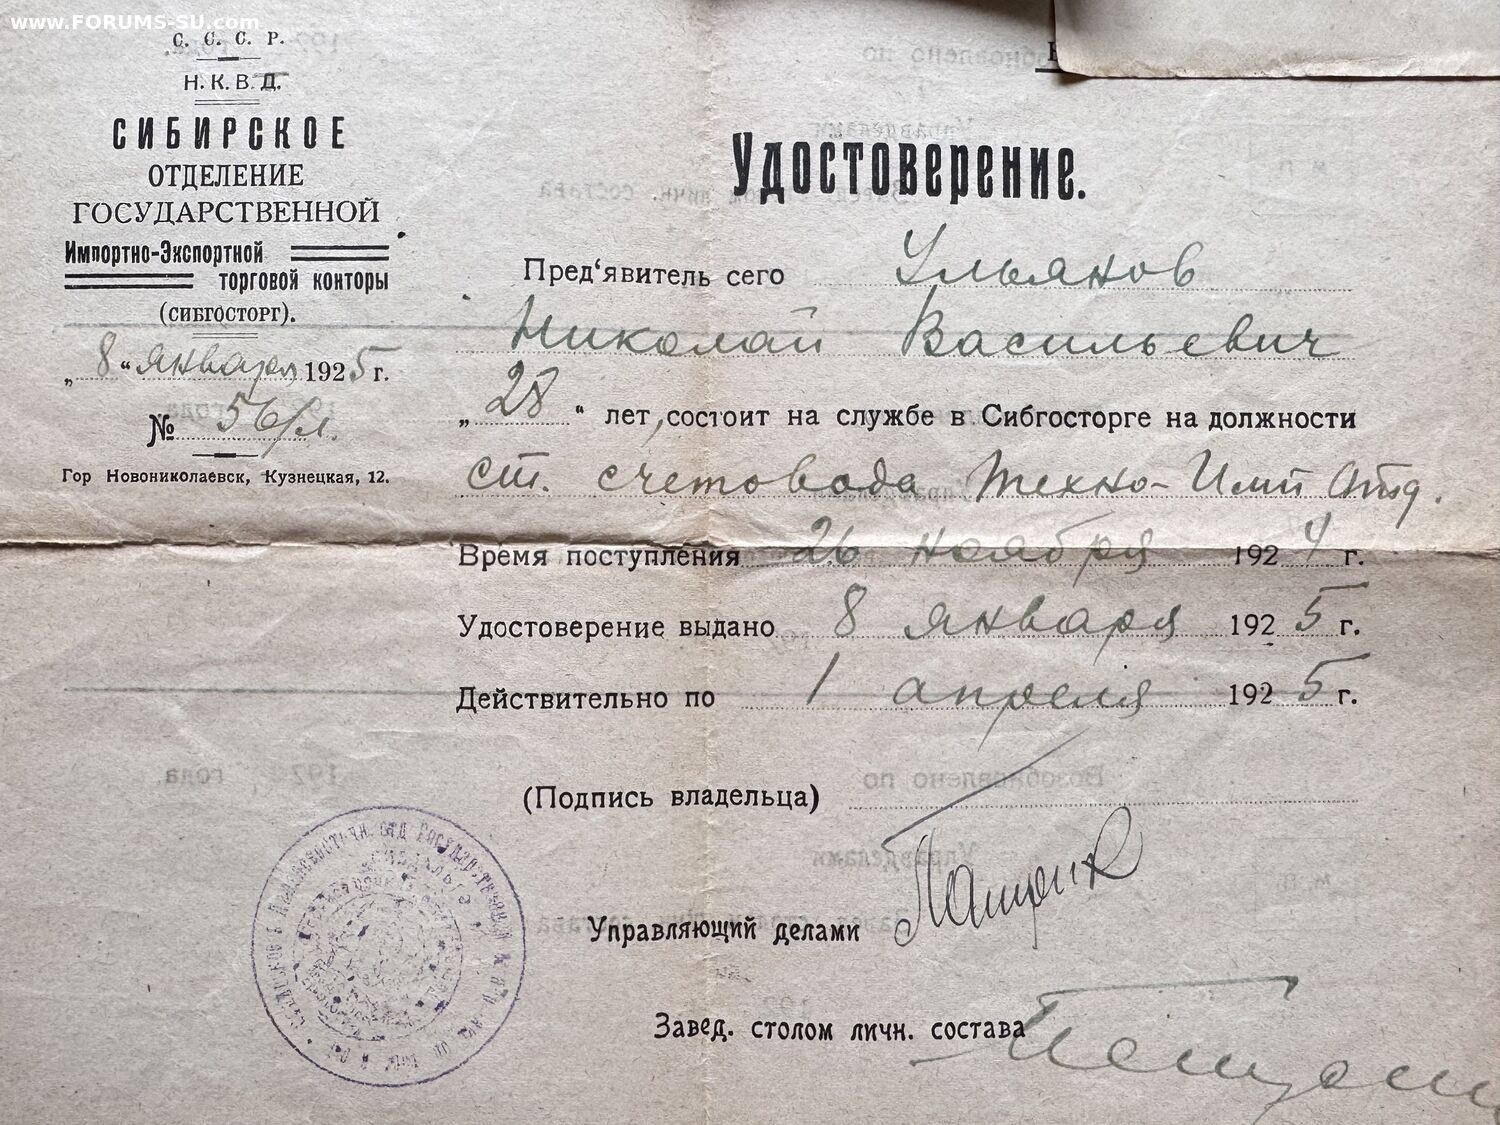 www.FORUMS-SU.com
С. С. С. Р.
Н. К. В. Д.
СИБИРСКОЕ
ОТДЕЛЕНИЕ
ГОСУДАРСТВЕННОЙ
Импортно-Экспортной
торговой конторы
(СИБГОСТОРГ).
„ 8 “ января 1925 г.
№ 56/л.
Гор Новониколаевск, Кузнецкая, 12.
Удостоверение.
Пред‘явитель сего Ульянов
Николай Васильевич
„ 28 “ лет, состоит на службе в Сибгосторге на должности
ст. счетовода Техно-Имп Отд.
Время поступления 26 ноября 1924 г.
Удостоверение выдано 8 января 1925 г.
Действительно по 1 апреля 1925 г.
(Подпись владельца)
Управляющий делами
Завед. столом личн. состава